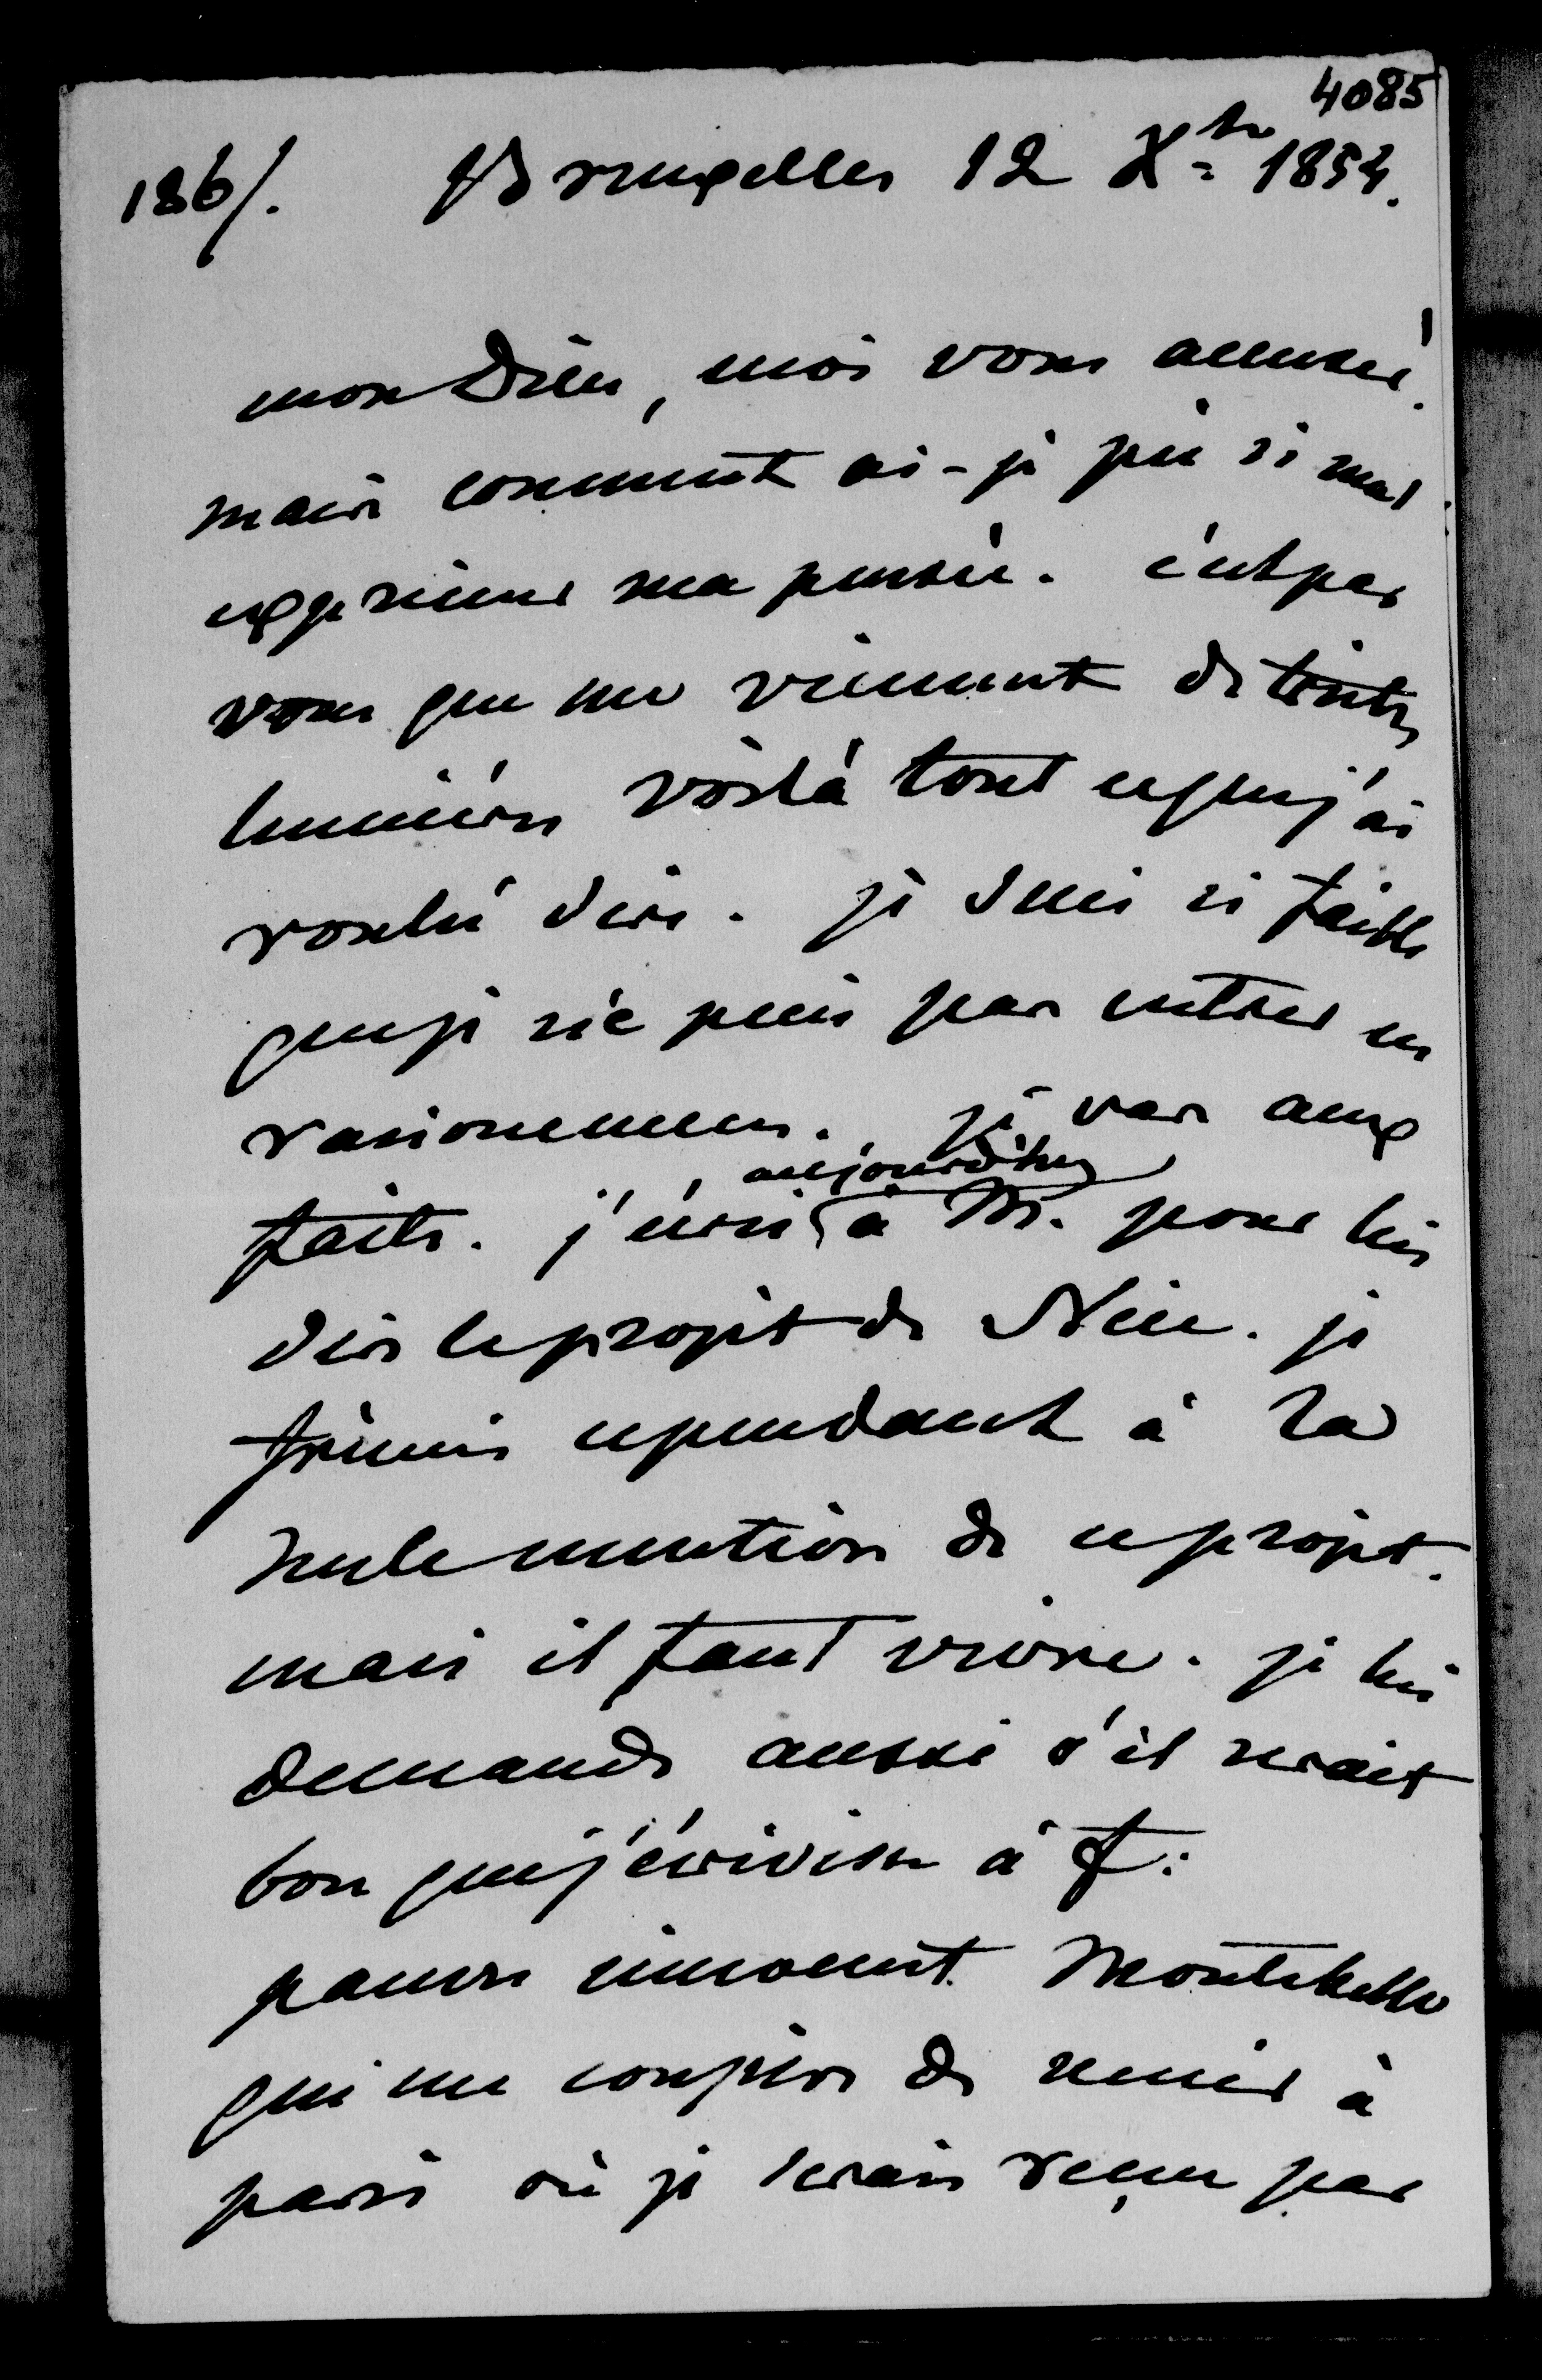 4085
186/. Bruxelles 12 Xbr 1854.
mon Dieu, moi vous accuser!
mais comment ai-je pu si mal
exprimer ma pensée. c'est par
vous que me viennent de tristes
lumières voilà tout ce que j'ai
voulu dire. je suis si faible
que je ne puis pas entrer en
raisonnemens. je vais aux
aujourd'hui
faits. j'écris à M. pour lui
dire le projet de Nice. je
frémis cependant à la
seule mention de ce projet.
mais il faut vivre. je lui
demande aussi s'il serait
bon que j'écrivisse à F.
pauvre innocent Montebello
qui me conjure de venir à
paris où je serais reçue par